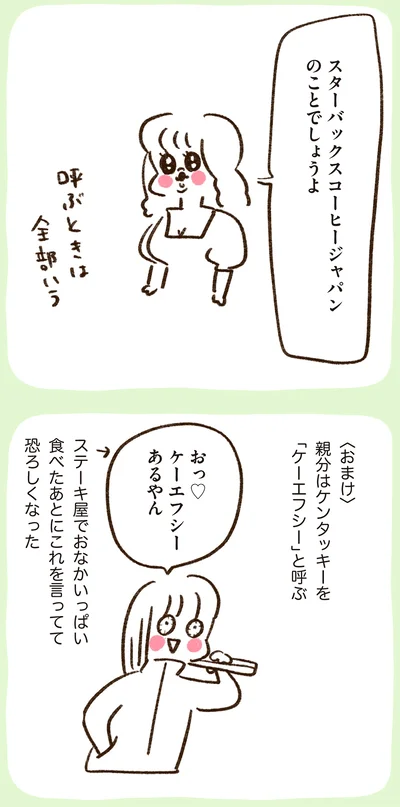 スターバックスコーヒージャパン
のことでしょうよ
呼ぶときは
全部いう
〈おまけ〉
親分はケンタッキーを
「ケーエフシー」と呼ぶ
おっ♡
ケーエフシー
あるやん
ステーキ屋でおなかいっぱい
食べたあとにこれを言ってて
恐ろしくなった